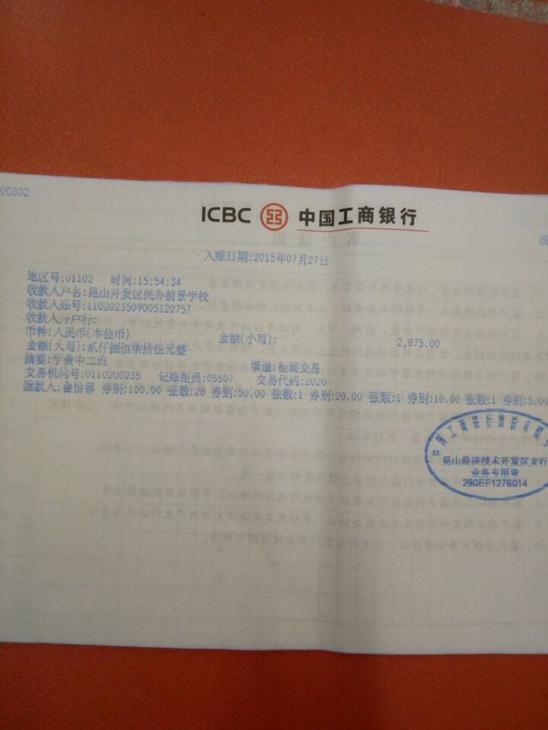 00302
ICBC 中国工商银行
入账日期:2015年07月27日
地区号:01102 时间:15:54:34
收款人户名:昆山开发区民办前景学校
收款人账号:1102023509005120757
收款人开户行:
币种:人民币(本位币) 金额(小写): 2,875.00
金额(大写):贰仟捌佰柒拾伍元整
摘要:学费中二班 渠道:柜面交易
交易机构号:0110200235 记账柜员:05507 交易代码:2020
缴款人:鲁怡霏 券别:100.00 张数:28 券别:50.00 张数:1 券别:20.00 张数:1 券别:10.00 张数:1 券别:5.00
昆山经济技术开发区支行
业务专用章
290EF1276014